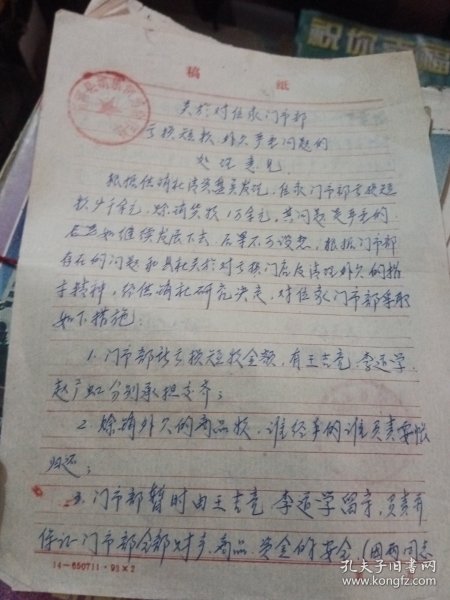 祝你幸福
稿 纸
关于对伍家门市部
亏损短款、外欠严重问题的
处理意见
根据供销社清资盘点发现,伍家门市部亏损短
款4千余元,赊销货款1万余元,其问题是严重的,
若再如继续发展下去,后果不可设想,根据门市部
存在的问题和县社关于对亏损门店及清理外欠的指
示精神,经供销社研究决定,对伍家门市部采取
如下措施:
1.门市部的亏损短款金额,有王吉亮、李道学、
赵广虹分别承担交齐;
2.赊销外欠的商品款,谁经手的谁负责要帐
归还;
3.门市部暂时由王吉亮、李道学留守,负责并
保证门市部全部财产、商品、资金的安全,(因两同志
14-650711·98×2
孔夫子旧书网
kongfz.com